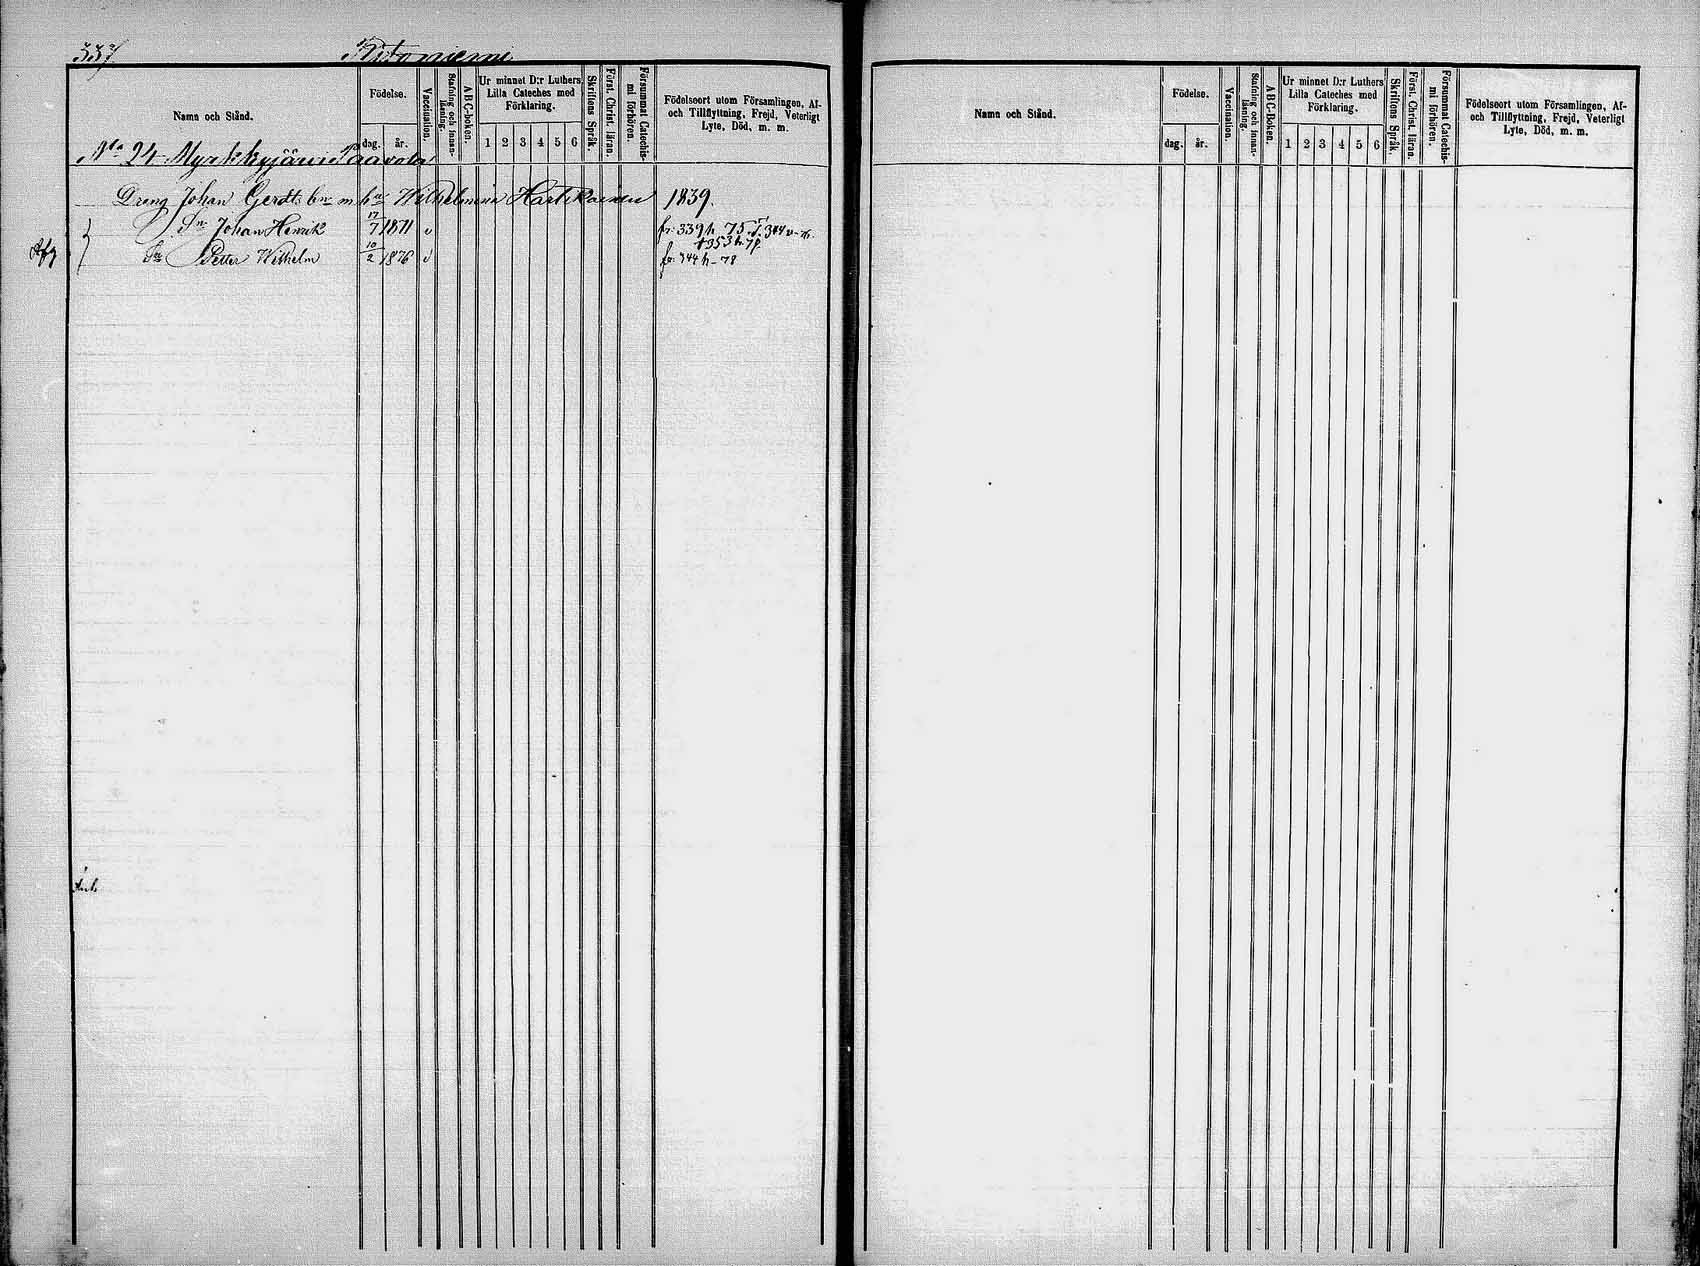 337. Ritoniemi
Namn och Stånd.
Födelse.
dag. år.
Vaccination.
Stafning och innan-läsning.
A B C-boken.
Ur minnet D:r Luthers Lilla Cateches med Förklaring.
1 2 3 4 5 6
Skriftens Språk.
Först. Christ. läran.
Försummat Catechis-mi förhören.
Födelseort utom Församlingen, Af- och Tillflyttning, Frejd, Veterligt Lyte, Död, m. m.
No 24 Myrkkyjärvi Paavola
Dreng Johan Gerdts bn m hu Wilhelmina Hartikainen 1839.
Sn Johan Henrik 17/7 1871 v fr. 339 h 75. T. 344 v-76.
+ 353 h. 78.
Sn Petter Wilhelm 10/2 1876 v fr. 344 h - 78
Namn och Stånd.
Födelse.
dag. år.
Vaccination.
Stafning och innan-läsning.
A B C-Boken.
Ur minnet D:r Luthers Lilla Cateches med Förklaring.
1 2 3 4 5 6
Skriftens Språk.
Först. Christ. läran.
Försummat Catechis-mi förhören.
Födelseort utom Församlingen, Af- och Tillflyttning, Frejd, Veterligt Lyte, Död, m. m.